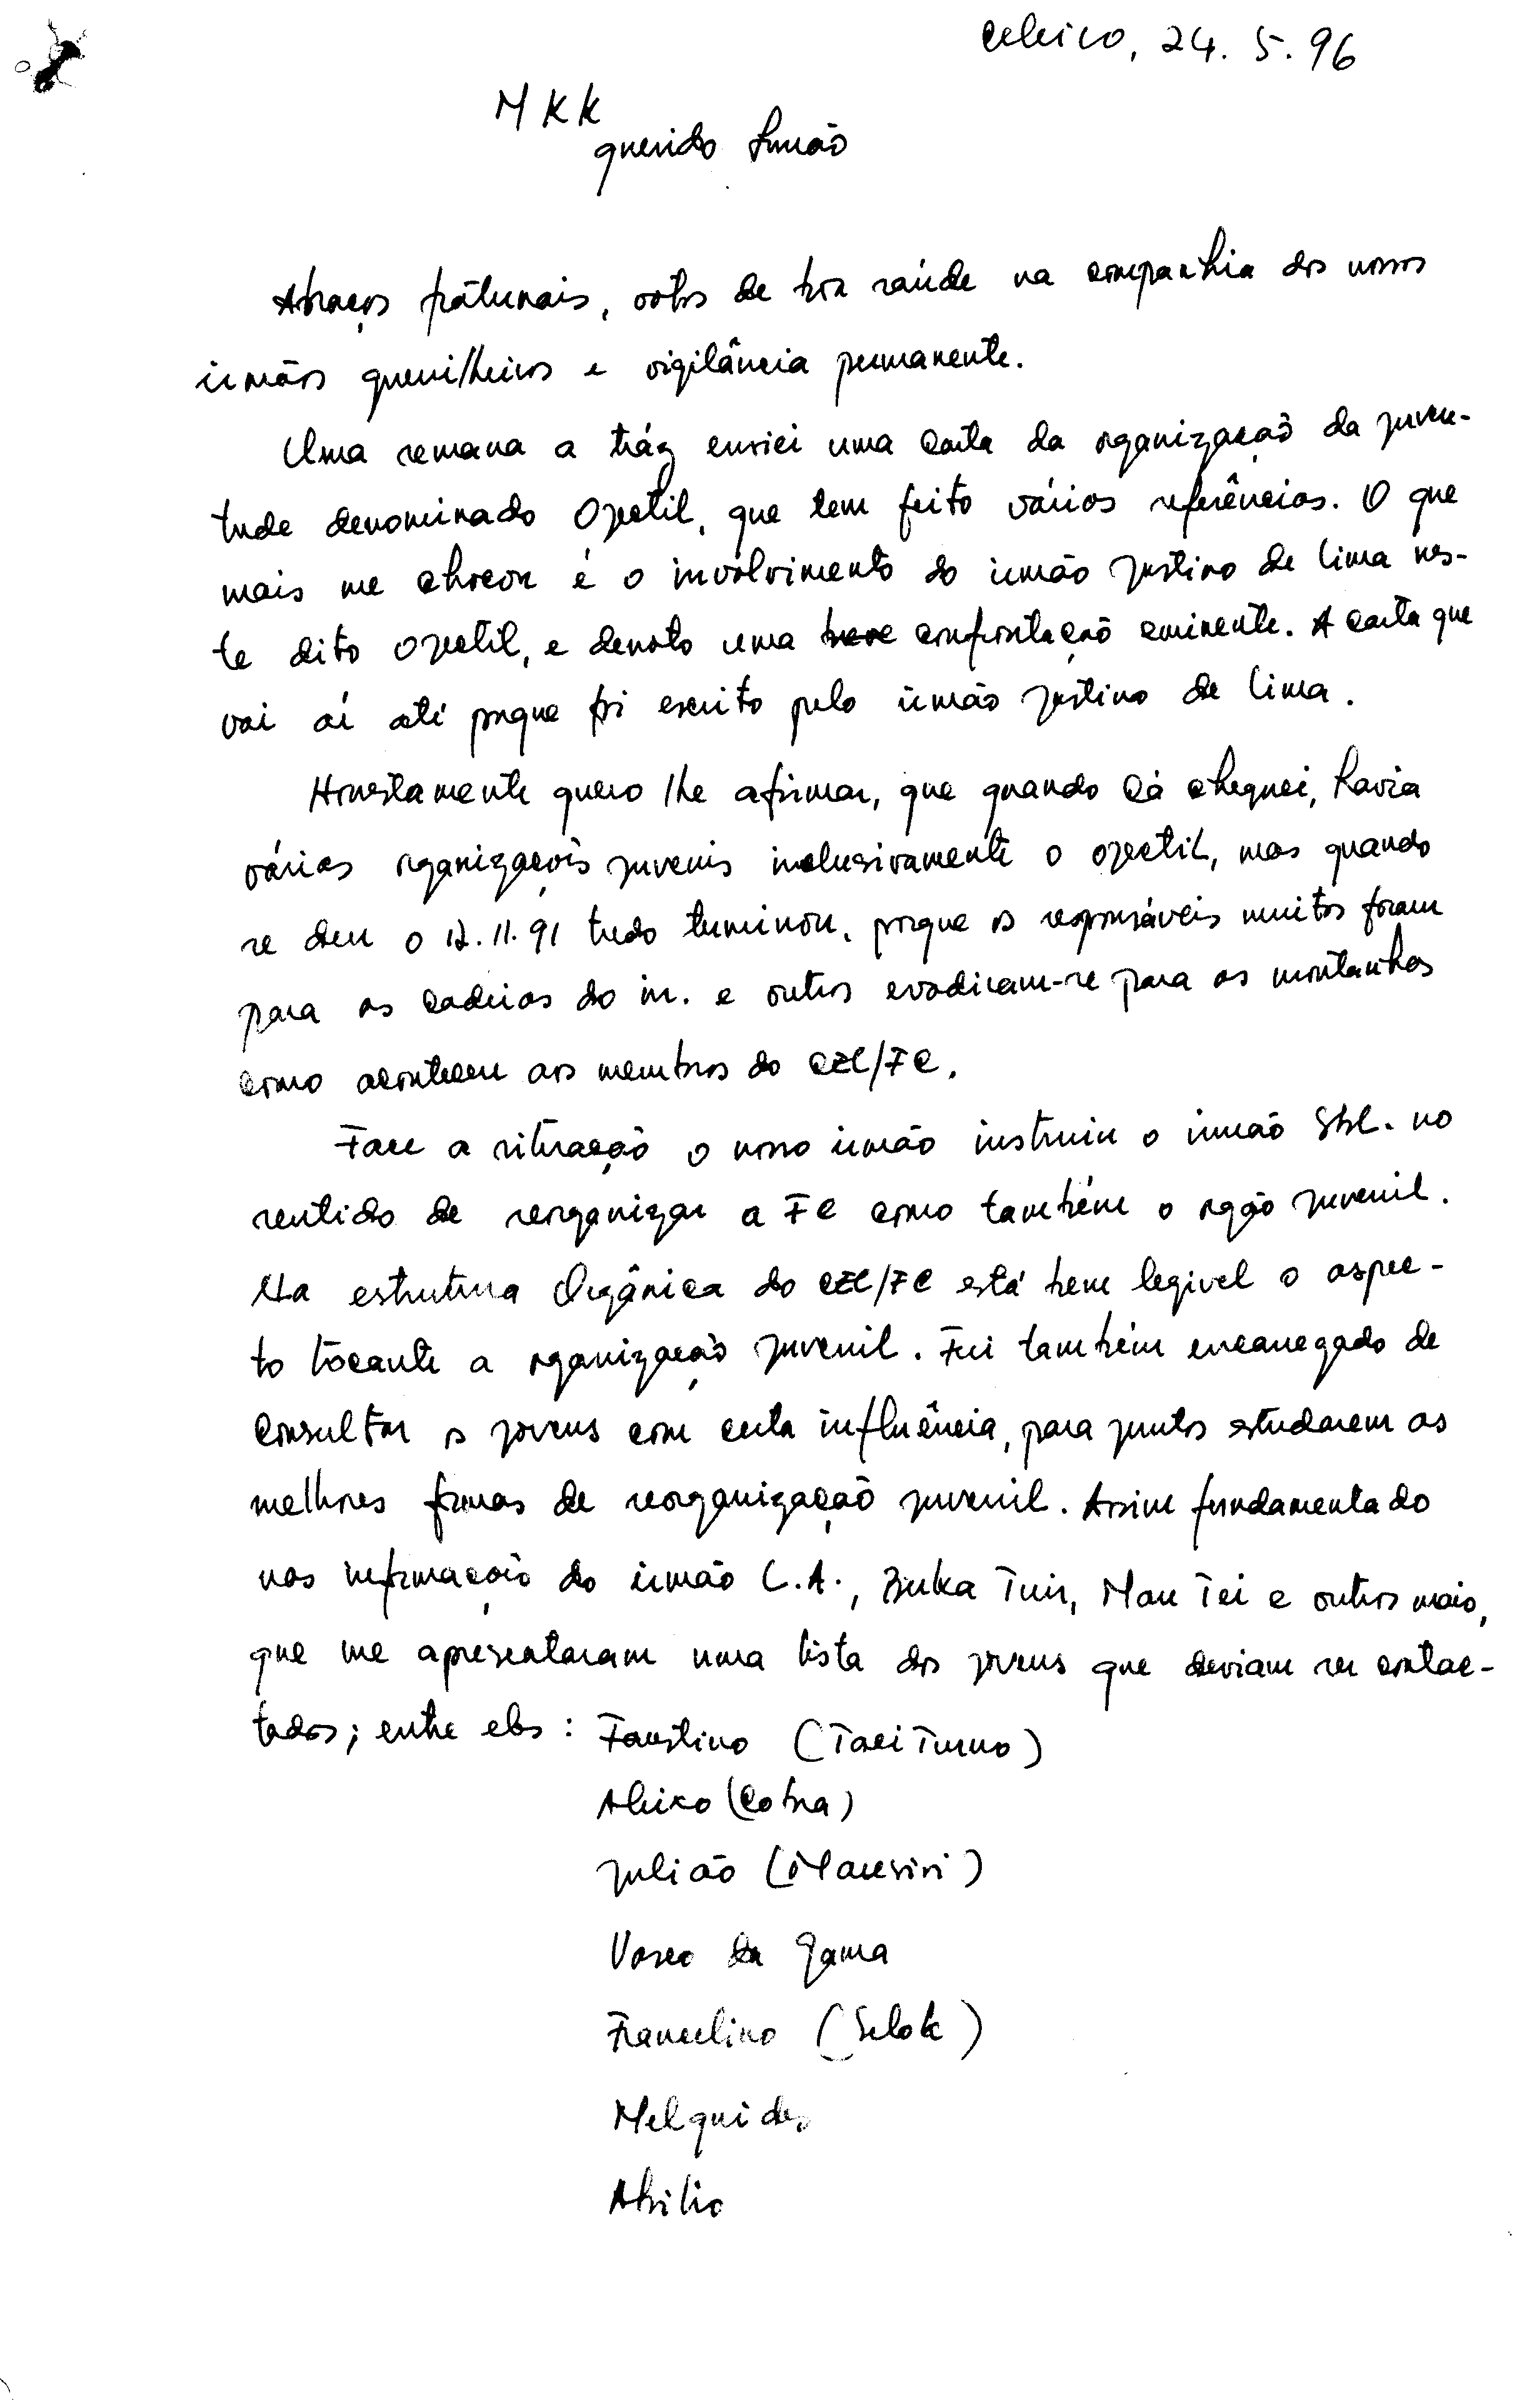 Celeiro, 24. 5. 96
MKK
querido Irmão
Abraços fráternais, votos de boa saúde na companhia dos nossos
irmãos guerrilheiros e vigilância permanente.
Uma semana a tráz enviei uma carta da organização da juven-
tude denominado Ojectil, que tem feito vários referências. O que
mais me chocou é o involvimento do irmão Justino de Lima nes-
te dito Ojectil, e denoto uma confrontação eminente. A carta que
vai aí até porque foi escrito pelo irmão Justino de Lima.
Honestamente quero lhe afirmar, que quando cá cheguei, havia
várias organizações juvenis inclusivamente o ojectil, mas quando
se deu o 12.11.91 tudo terminou, porque os responsáveis muitos foram
para as cadeias do in. e outros evadiram-se para as montanhas
como aconteceu aos membros do CEL/FC.
Face a situação o nosso irmão instruiu o irmão Sbl. no
sentido de reorganizar a FC como também o orgão juvenil.
Na estrutura Orgânica do CEL/FC está bem legivel o aspec-
to tocante a organização juvenil. Fui também encarregado de
consultar os jovens com certa influência, para juntos estudarem as
melhores formas de reorganização juvenil. Assim fundamentado
nas informações do irmão L.A., Buka Tuir, Mau Tei e outros mais,
que me apresentaram uma lista dos jovens que deviam ser contac-
tados; entre eles: Faustino (Taciturno)
Aleixo (Cobra)
Julião (Mausiri)
Vasco da Gama
Francelino (Selok)
Melquides
Abilio